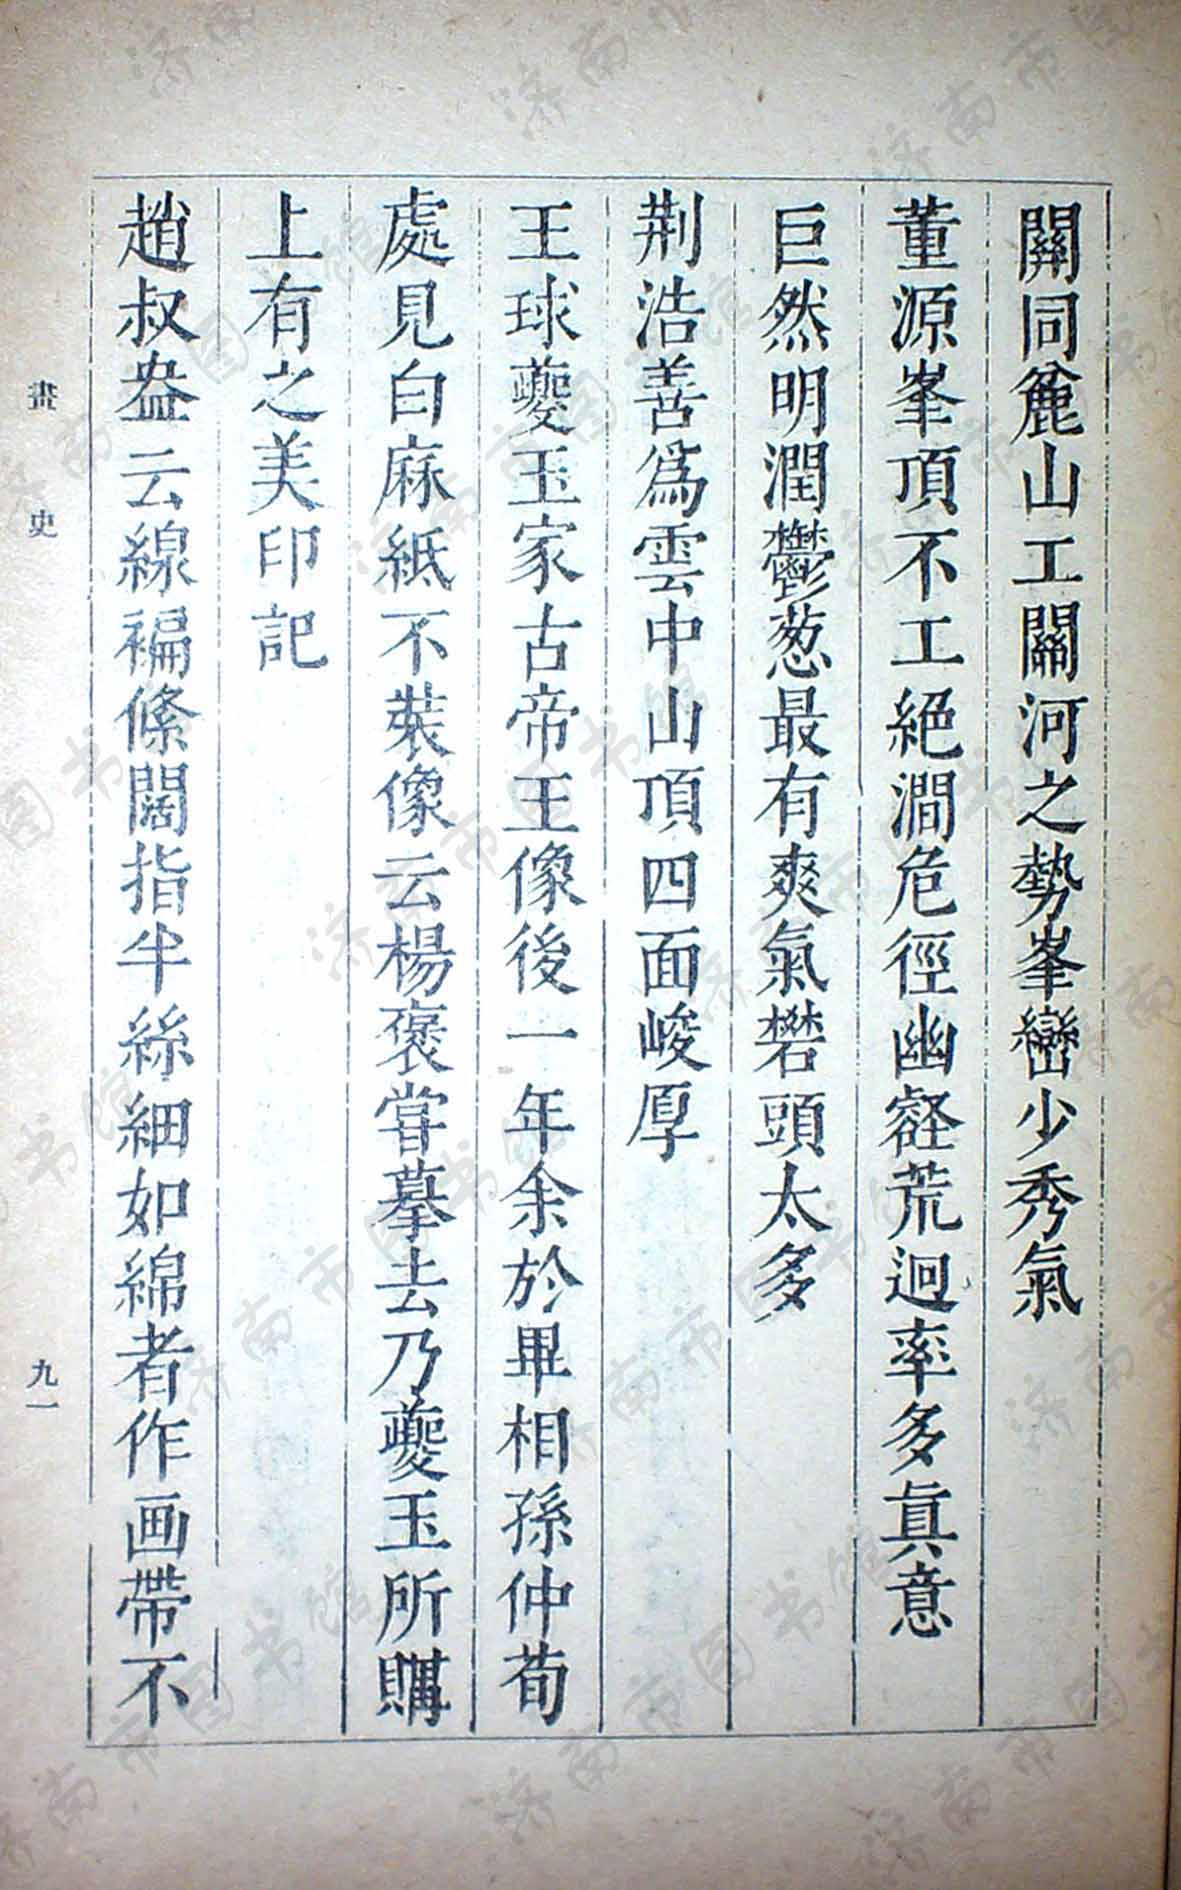 關同麄山工關河之勢峯巒少秀氣
董源峯頂不工絕澗危徑幽壑荒迥率多眞意
巨然明潤鬱葱最有爽氣礬頭太多
荆浩善爲雲中山頂四面峻厚
王球夔玉家古帝王像後一年余於畢相孫仲荀
處見白麻紙不裝像云楊褒嘗摹去乃夔玉所購
上有之美印記
趙叔盎云線褊絛闊指半絲細如綿者作画帶不
畫史
九一
济南市图书馆